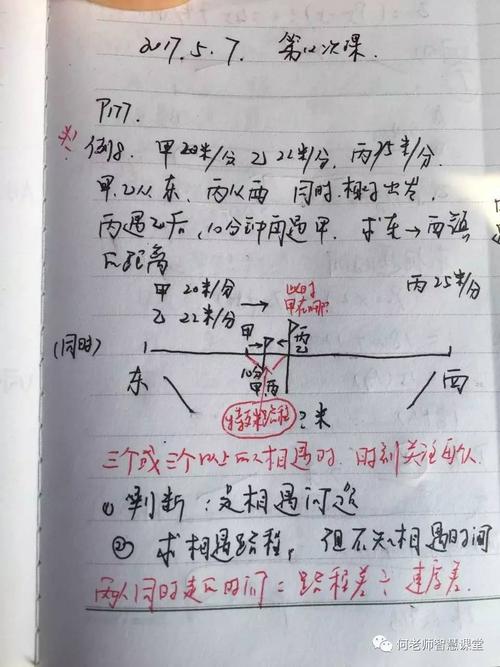 2017.5.7. 第12次课.
P177.
例8. 甲20米/分 乙22米/分. 丙25米/分.
甲.乙从东. 丙从西 同时.相向出发.
丙遇乙后,10分钟再遇甲. 求东→西镇
的距离
甲 20米/分 →
乙 22米/分
此时
甲在哪?
丙25米/分
(同时)
甲
乙
丙
10分
甲.丙
东
西
特殊路程
?米
三个或三个以上的人相遇时. 时刻关注再人.
① 判断:是相遇问题
② 求相遇路程, 但不知相遇时间
两人同时走的时间=路程差÷速度差.
何老师智慧课堂